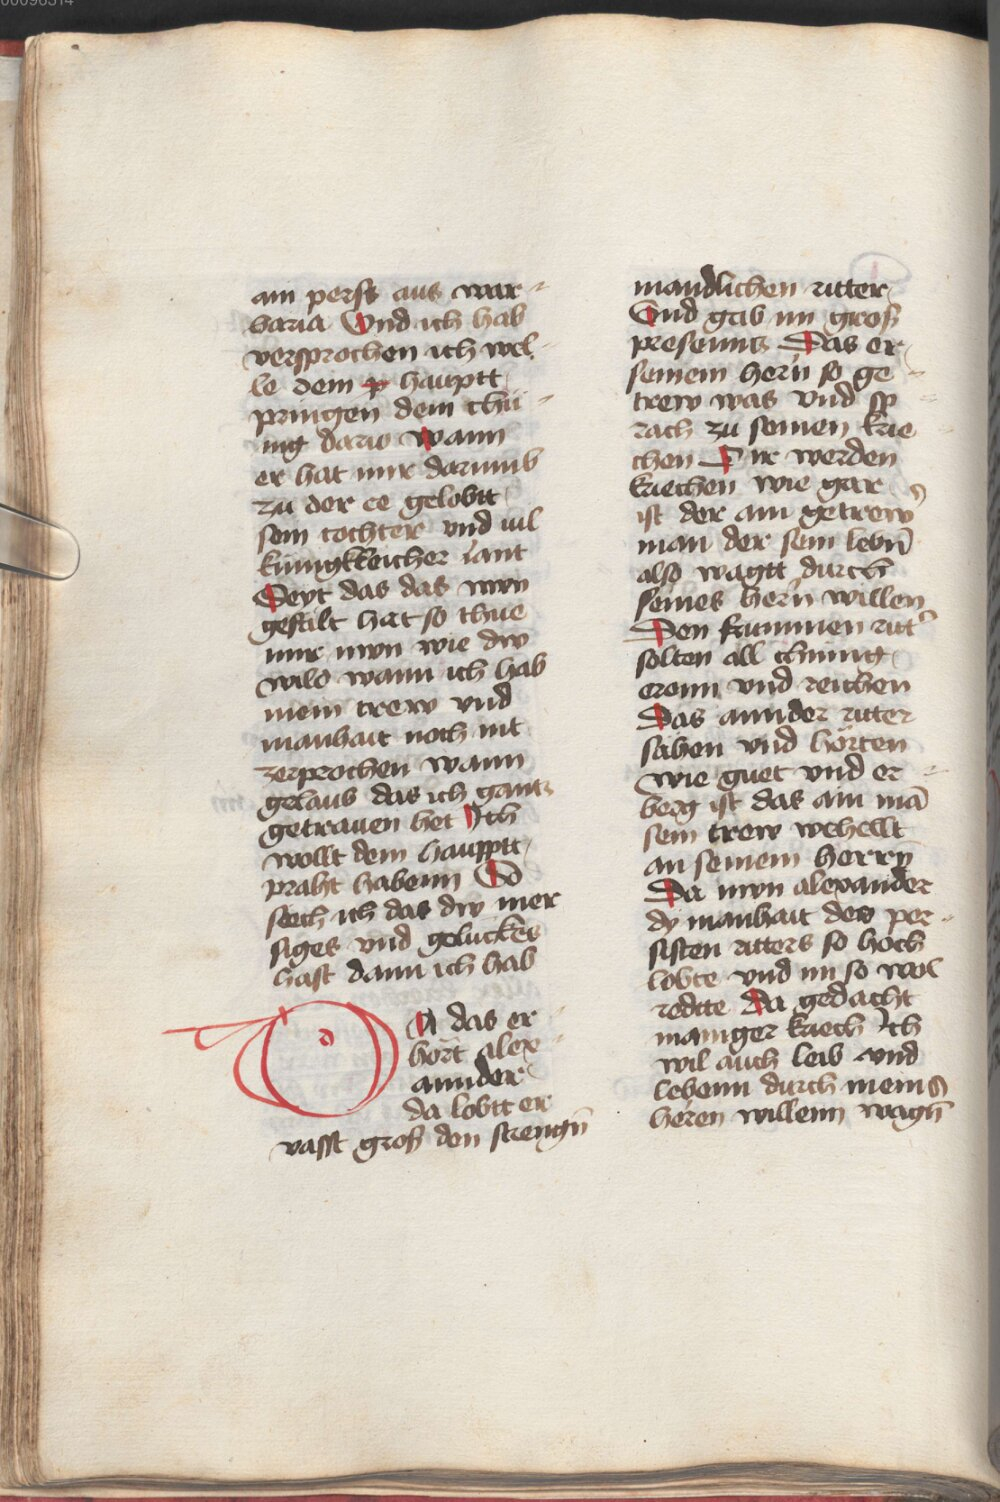 ain perss aus war-
baria Vnd ich hab
versprochen ich wel-
le dem p hauptt
pringen dem chü-
nig dario wann
er hat mir darumb
zu der ee gelobtt
sein tochter vnd vil
kunigkleicher lant
Seyt das das nwn
gefält hat so thue
mir nwn wie dw
wild wann ich hab
mein trew vnd
manhait noch nit
zerprochen wann
gelaub das ich gantz
getrauen het Ich
wollt dem hauptt
praht habenn So
siech ich das dw mer
siges vnd geluckes
hast dann ich hab
DA das er-
hört alex-
annder
da lobtt er
vasst groß den strengn̄
mandlichen ritter
Vnd gab im groß
presennts Das er
seinem herñ so ge-
trew was vnd sp-
rach zu seinen krie-
chen Ir werden
kriechen wie gar
ist der ain getrew
man der sein lebn̄
also wagtt durch
seines herñ willen
Den frummen ritt'
solten all chunig
erenn vnd reichen
Das annder ritter
sahen vnd hörten
wie guet vnd er-
berg ist das ain mā
sein trew wehellt
an seinem herrn
Da nwn alexander
dy manhait des per-
sisten ritters so hoch
lobte vnd im so wol
redtte Da gedacht
maniger kriech Ich
wil auch leib vnd
lebenn durch meins
heren willenn wagn̄